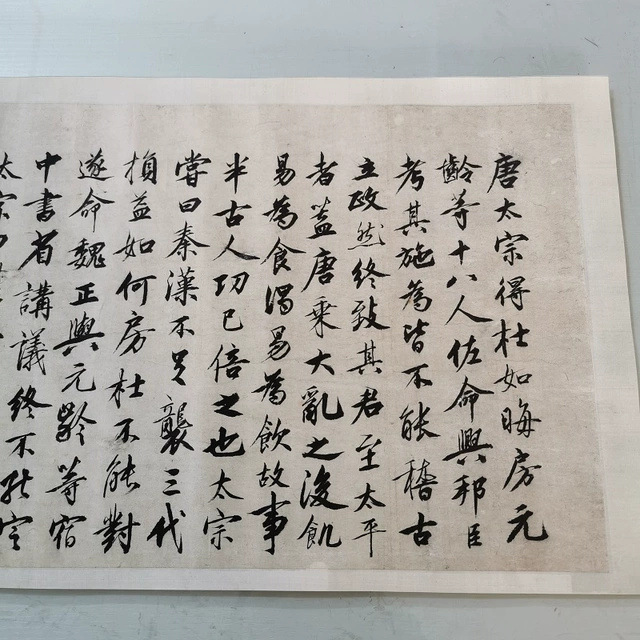 唐太宗得杜如晦房元
齡等十八人佐命興邦臣
考其施為皆不能稽古
立政然終致其君至太平
者蓋唐乘大亂之後飢
易為食渴易為飲故事
半古人功已倍之也太宗
嘗曰秦漢不足襲三代
損益如何房杜不能對
遂命魏正與元齡等宿
中書省講議終不能定
太宗